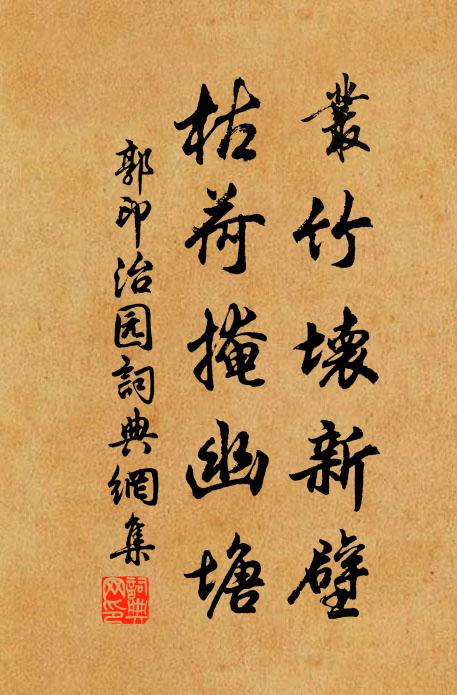 叢竹壞新壁
枯荷掩幽塘
郭印治园詞典網集
詞典網印